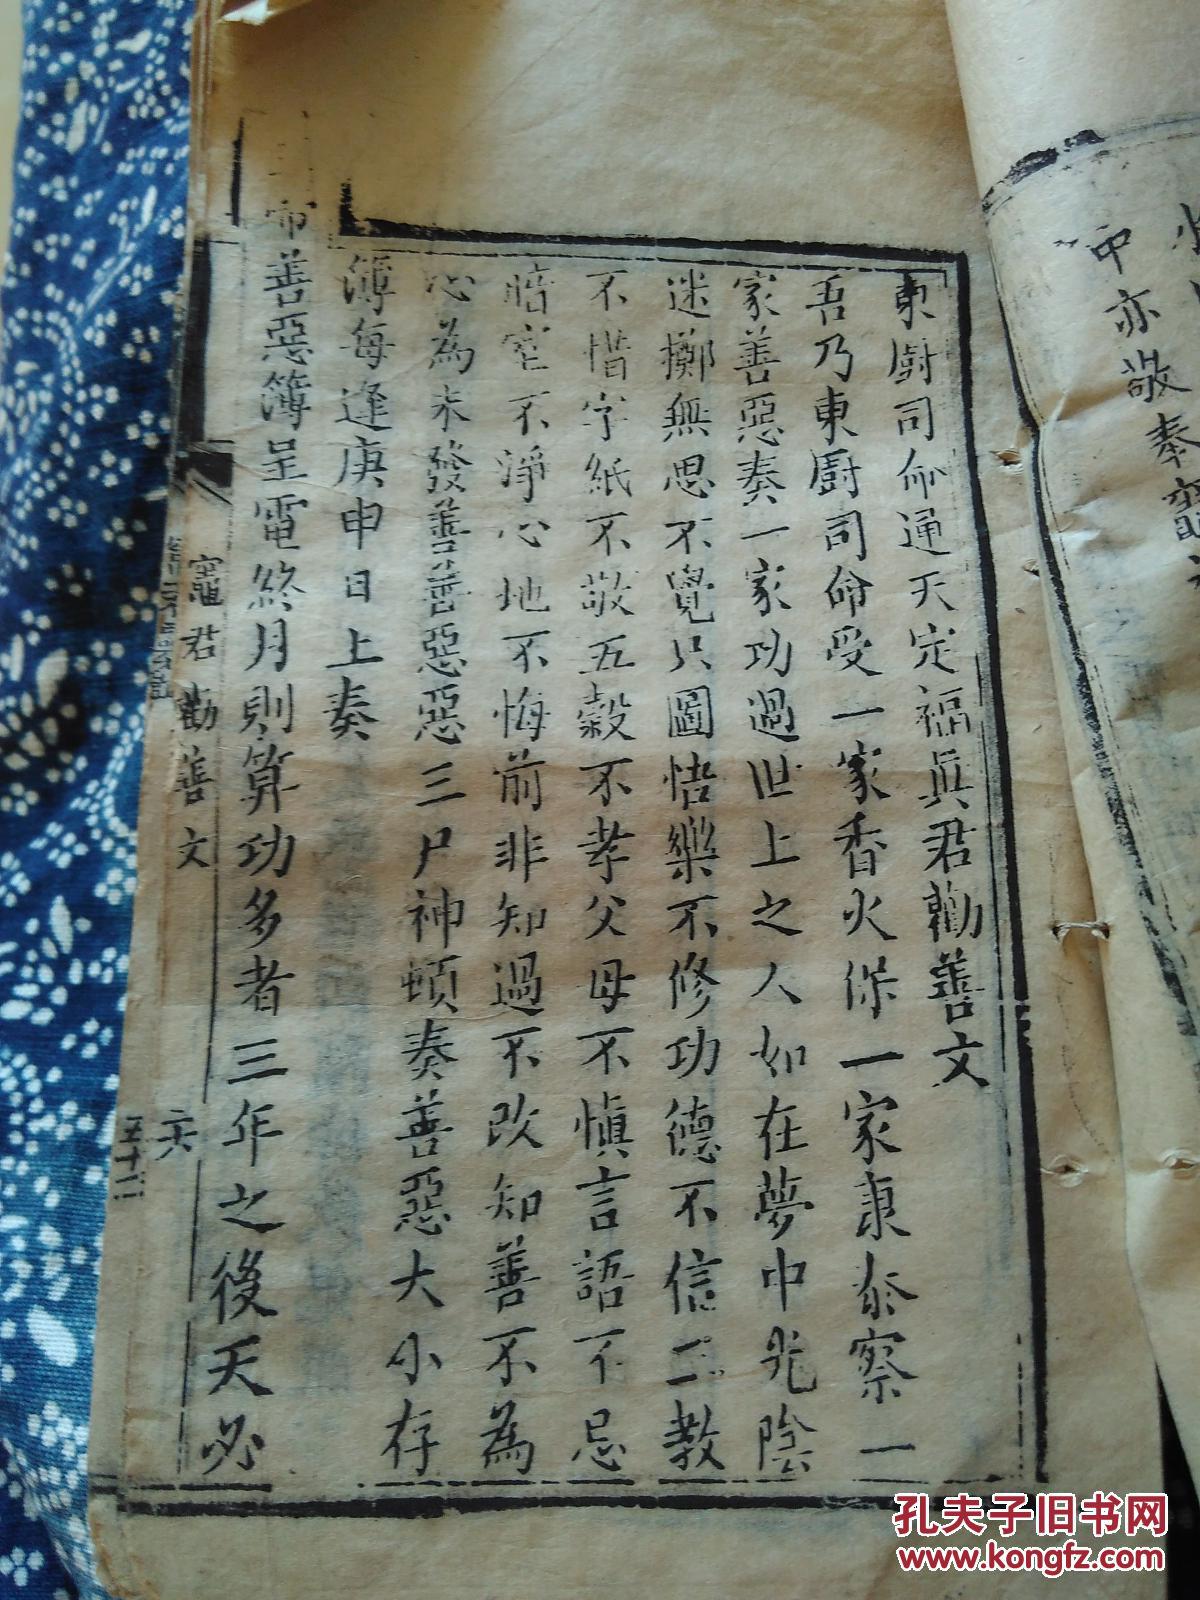 東廚司命通天定福眞君勸善文
吾乃東廚司命受一家香火保一家康泰察一
家善惡奏一家功過世上之人如在夢中光陰
迷擲無思不覺只圖恬樂不修功德不信二教
不惜字紙不敬五穀不孝父母不慎言語不忌
暗室不淨心地不悔前非知過不改知善不為
心為未發善善惡惡三尸神頓奏善惡大小存
簿每逢庚申日上奏
帝善惡簿呈電終月則算功多者三年之後天必
竈君勸善文
六
五十三
中亦敬奉竈
孔夫子旧书网
www.kongfz.com